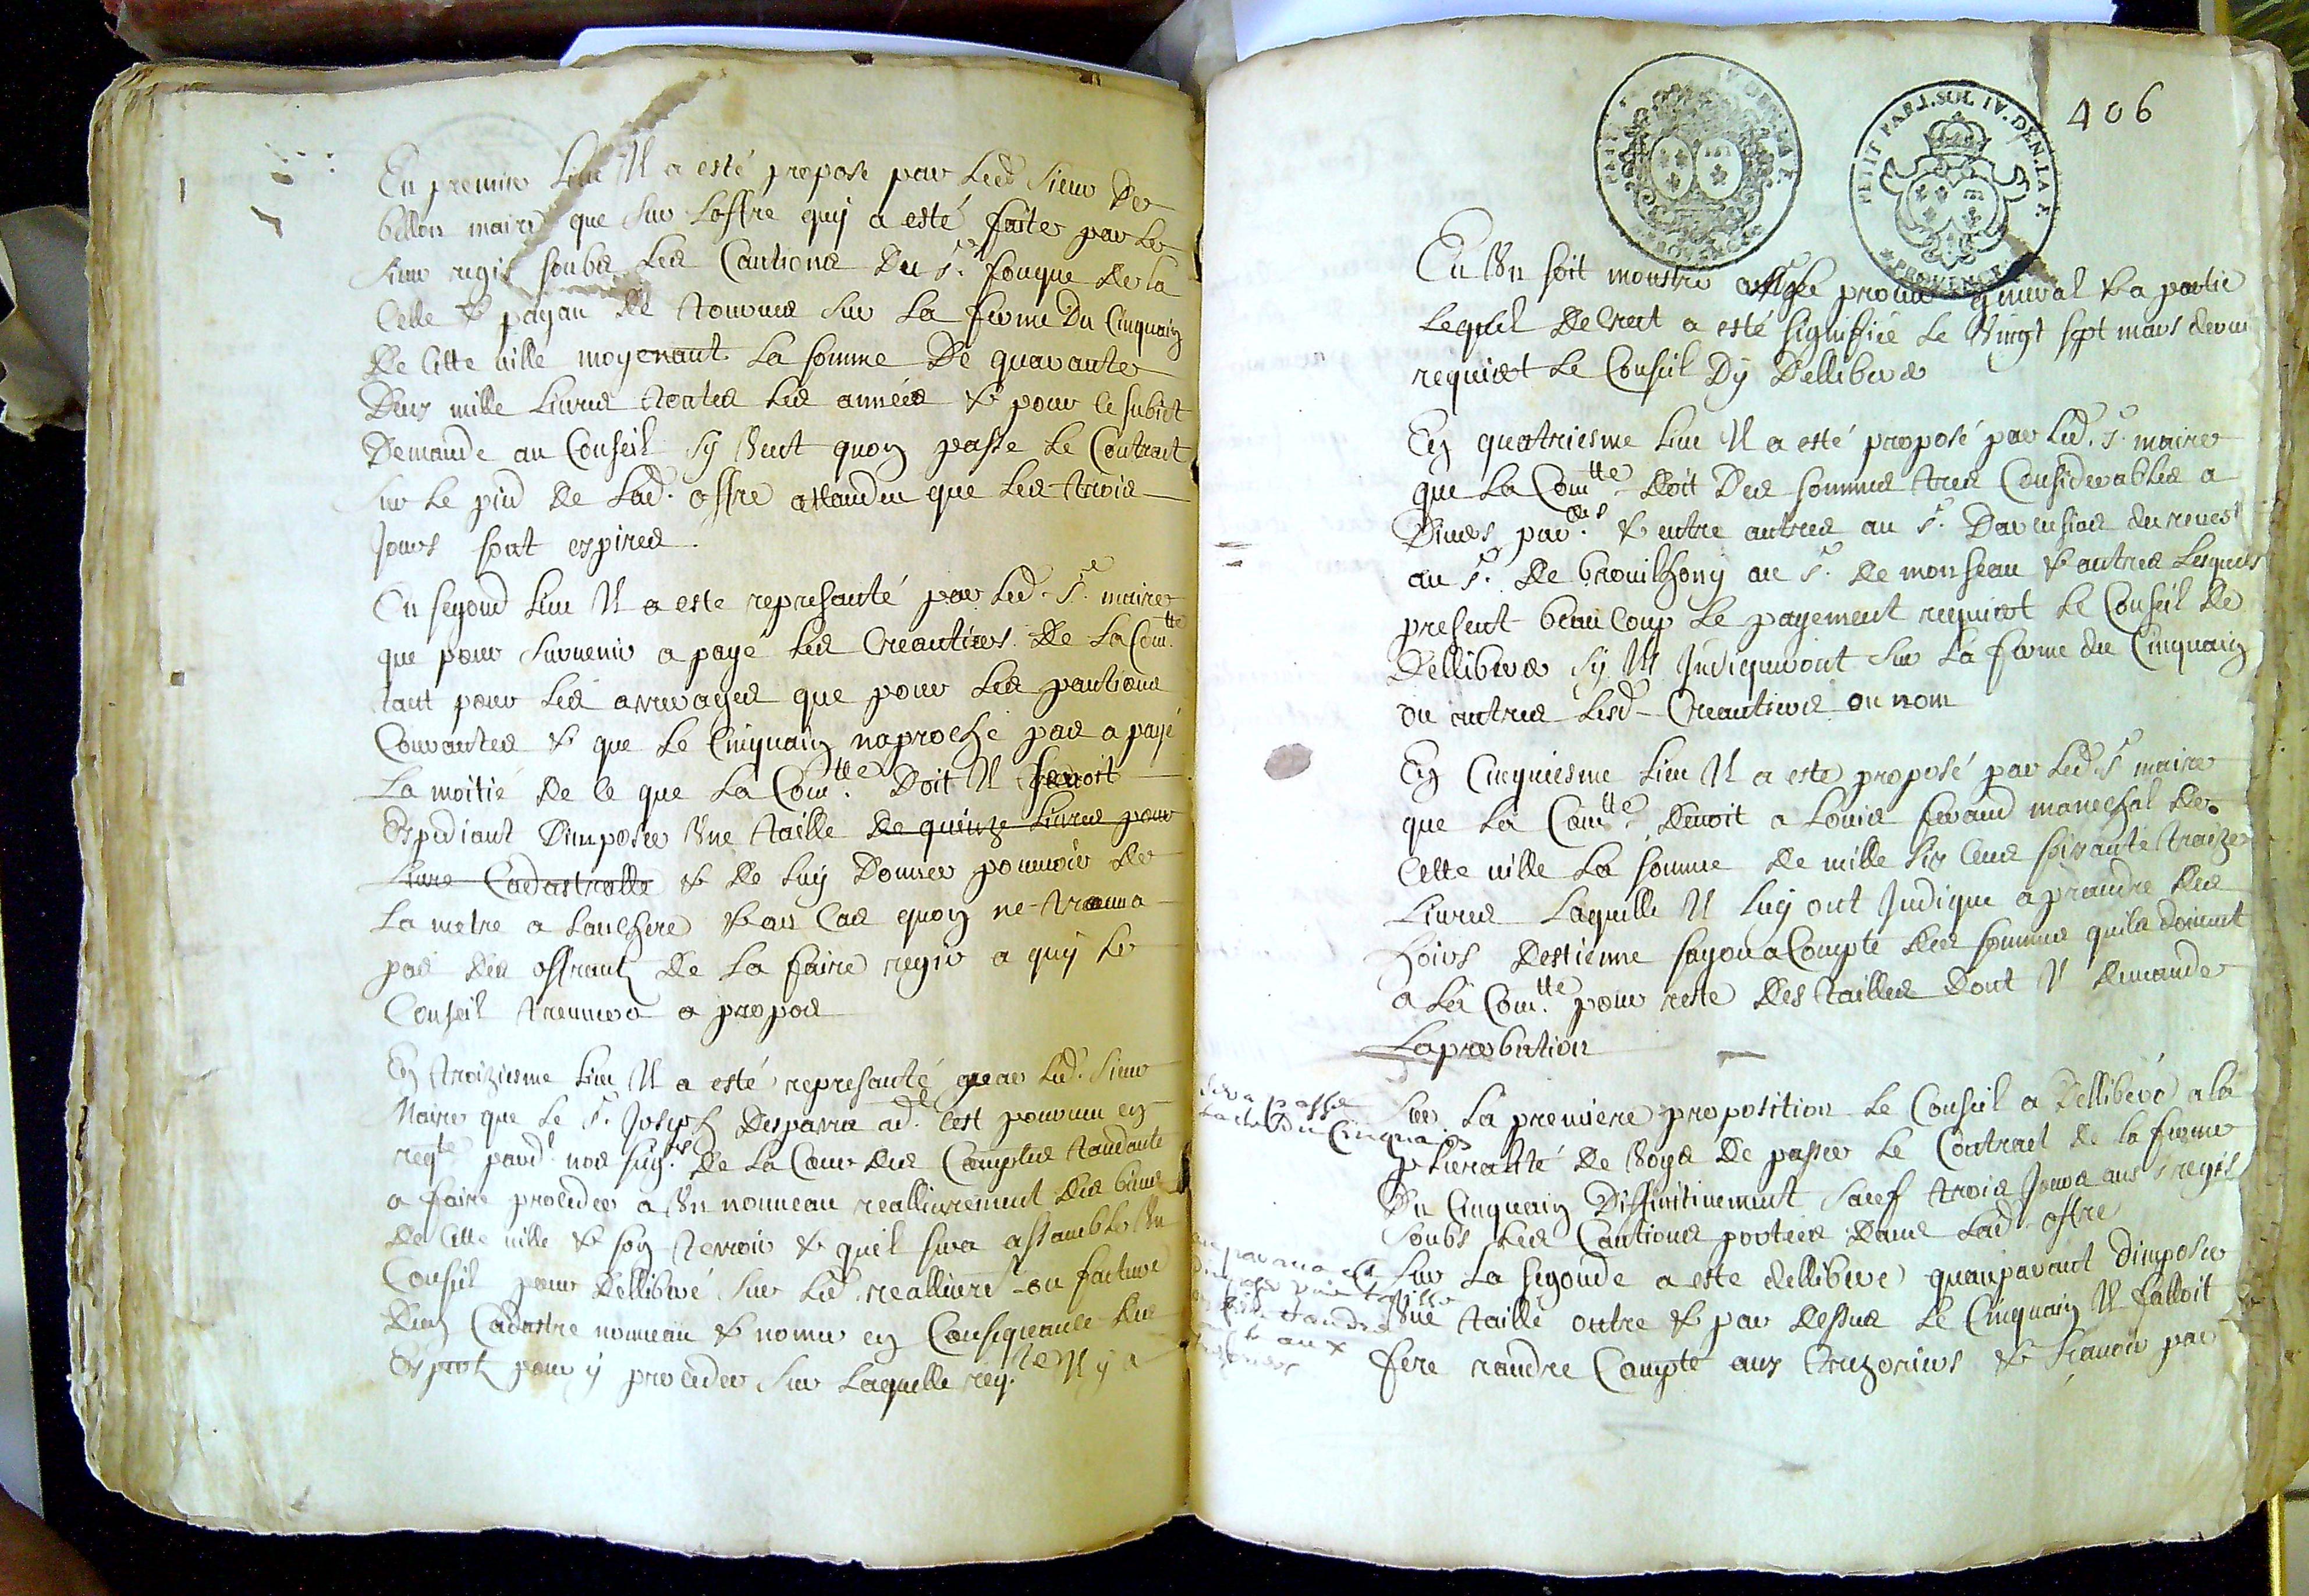 En premier lieu Il a esté proposé par led. sieur de
billon maire que sur loffre quy a esté faite par le
sieur regis soubz les Cautions du Sr. fouque de la
Celle & payan de tourves sur la ferme du Cinquain
de Cette ville moyenant la somme de quarante
deux mille livres toutes les années & pour ce subiet
demande au Conseil sy veut quon passe le Contrait
sur le pied de lad. offre attandeu que les trois
jours sont expires
En segond lieu Il a este represanté par led. Sr. maire
que pour survenir a payé les Creantiers de la Com.tte
tant pour les arreyrages que pour les pantions
Courantes & que le Cinquain naproche pas a payé
la moitié de ce que la Com.tte doit Il seroit
Expediant dimposer Une taille de quinze livres pour
livre Cadastralle & de luy donner pouvoir de
la metre a lanchere & au Cas quon ne trouva
pas des offrantz de la faire regir a quy le
Conseil treuvera a propos
En troiziesme lieu Il a esté represanté par led. sieur
Maire que le Sr. Joseph desparra ad.t Cest pourveu en
reqte pard.t nos sug.rs de la Cour des Comptes tandante
a faire proceder a Un nouveau reallivrement des biens
de Cette ville & son terroir & quil sera assamble Un
Conseil pour dellibere sur led. reallivre.t ou facture
dun Cadastre nouveau & nomer en Consequance des
Expertz pour y proceder sur laquelle req.te Il y a
406
PETIT PAP. 1. SOL IV. DEN. LA F.
PROVENCE
Eu Un soit monstré au Sr procur general & a partie
lequel decret a esté signiffié le Vingt sept mars dernier
requiert le Conseil dy dellibere
En quatriesme lieu Il a esté proposé par led. Sr. maire
que la Com.tte doit des sommes tres Considerables a
divers par.ers & entre autres au Sr. davensies du revest
au Sr. de brouilhony au Sr. de monseau & autres lesquels
present beaucoup le payement requiert le Conseil de
dellibere sy Ils Indiqueront sur la ferme du Cinquain
ou autres lesd. Creantiers ou nom
En Cinquiesme lieu Il a este proposé par led. Sr maire
que la Com.tte devoit a Louis feraud marechal de
Cette ville la somme de mille six Cens soixante traize
livres laquelle Il luy ont Indique a prandre des
hoirs destienne sayou a Compte des sommes quils doivent
a la Com.tte pour reste des tailles dont Il demande
laprobation
sera passé
lacte du Cinquain
Sur la premiere proposition le Conseil a delliberé a la
plueralité de Voyes de passer le Contrait de la ferme
du Cinquain diffinitivement sauf trois Jours aud. Sr regis
soubs les Cautions portees dans lad. offre
auparavant
dimposer une taille
fere randre
Compte aux
trezoriers
Sur la segonde a este dellibere quauparavant dimposer
Une taille outre & par dessus le Cinquain Il falloit
fere randre Compte aux trezoriers & scavoir par